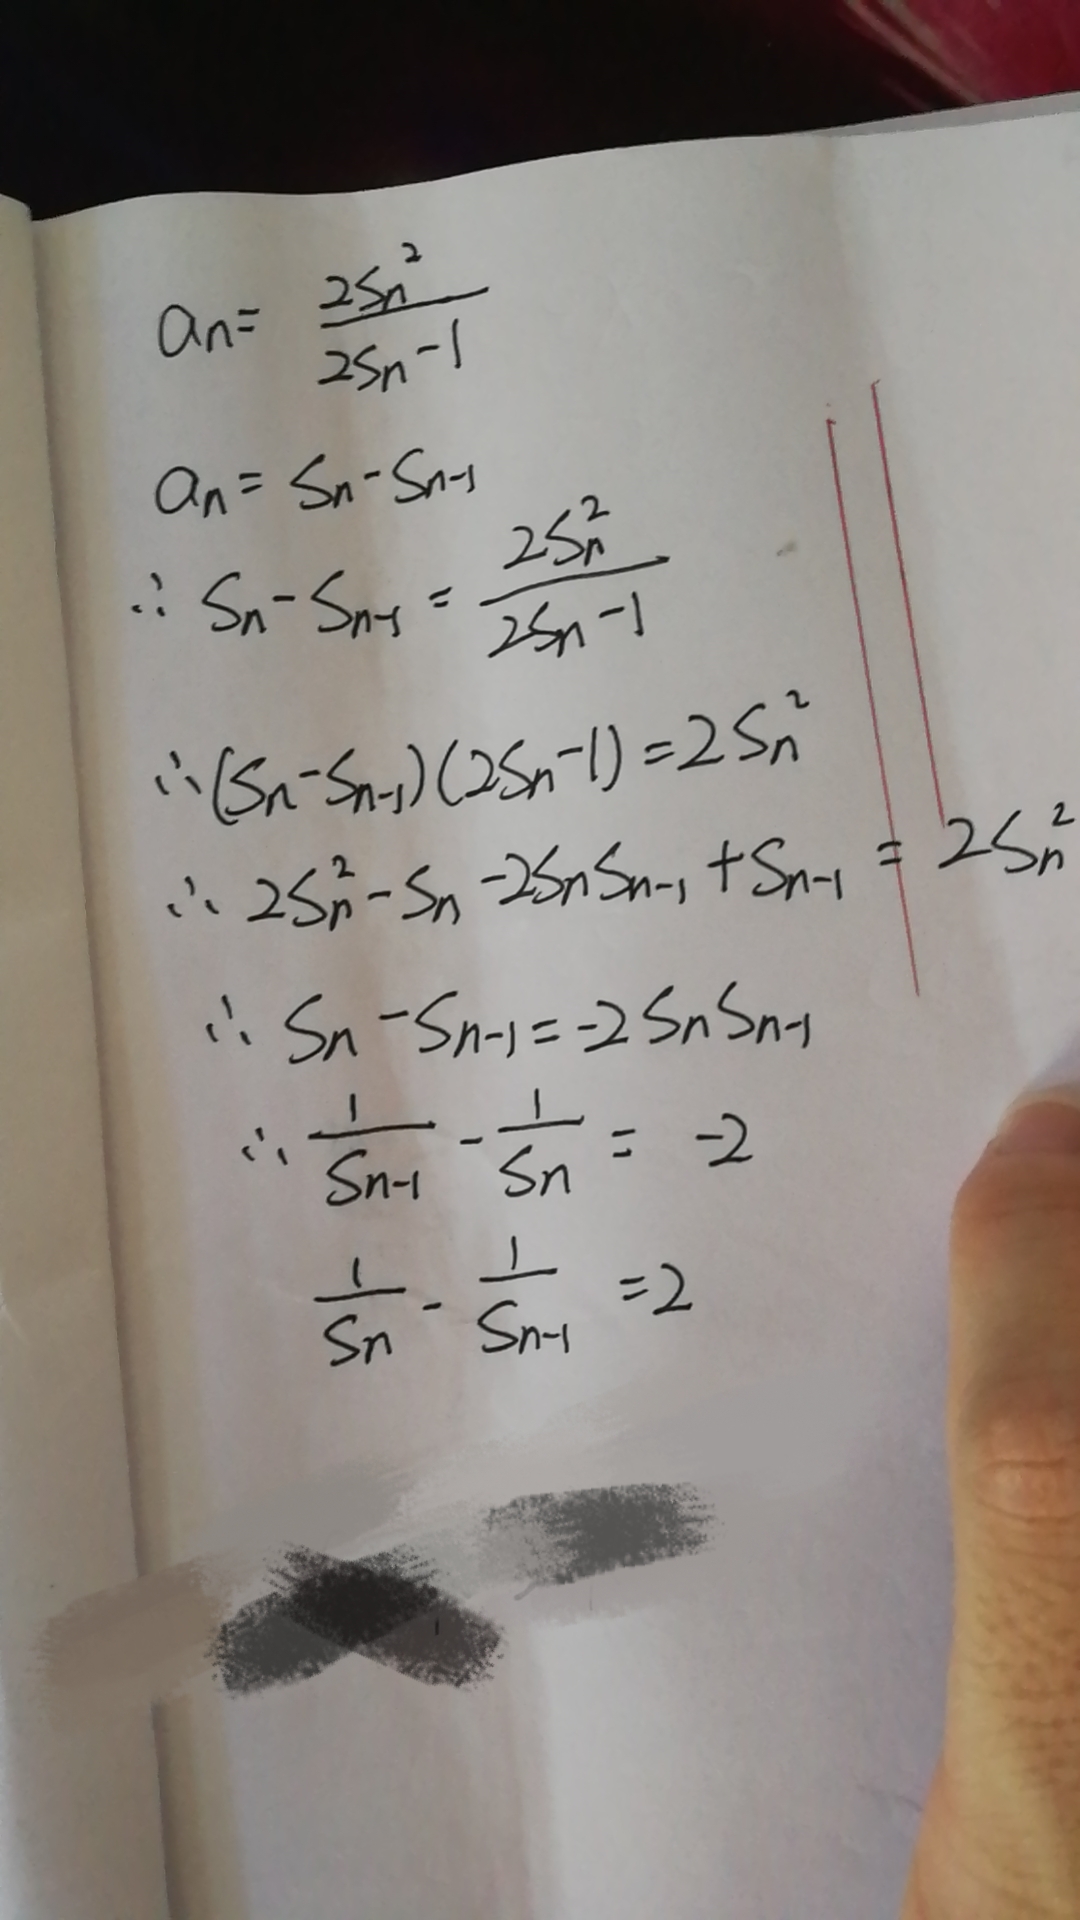 aₙ = 2Sₙ² / (2Sₙ - 1)
aₙ = Sₙ - Sₙ₋₁
∴ Sₙ - Sₙ₋₁ = 2Sₙ² / (2Sₙ - 1)
∴ (Sₙ - Sₙ₋₁)(2Sₙ - 1) = 2Sₙ²
∴ 2Sₙ² - Sₙ - 2SₙSₙ₋₁ + Sₙ₋₁ = 2Sₙ²
∴ Sₙ - Sₙ₋₁ = -2SₙSₙ₋₁
∴ 1/Sₙ₋₁ - 1/Sₙ = -2
1/Sₙ - 1/Sₙ₋₁ = 2